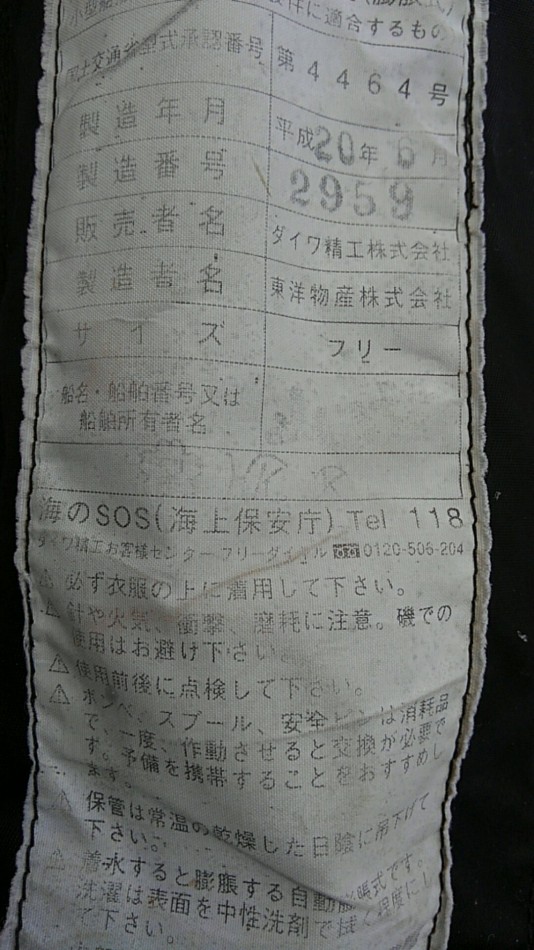 小型船舶
要件に適合するもの
国土交通省型式承認番号 第4464号
製造年月 平成20年6月
製造番号 2959
販売者名 ダイワ精工株式会社
製造者名 東洋物産株式会社
サイズ フリー
船名・船舶番号又は
船舶所有者名
海のSOS(海上保安庁) Tel 118
ダイワ精工お客様センター フリーダイヤル 0120-506-204
⚠ 必ず衣服の上に着用して下さい。
⚠ 針や火気、衝撃、磨耗に注意。磯での
使用はお避け下さい
⚠ 使用前後に点検して下さい。
⚠ ボンベ、スプール、安全ピンは消耗品
で、一度、作動させると交換が必要で
す。予備を携帯することをおすすめし
ます。
⚠ 保管は常温の乾燥した日陰に吊下げて
下さい。
⚠ 着水すると膨脹する自動膨脹式です。
洗濯は表面を中性洗剤で拭く程度にし
て下さい。